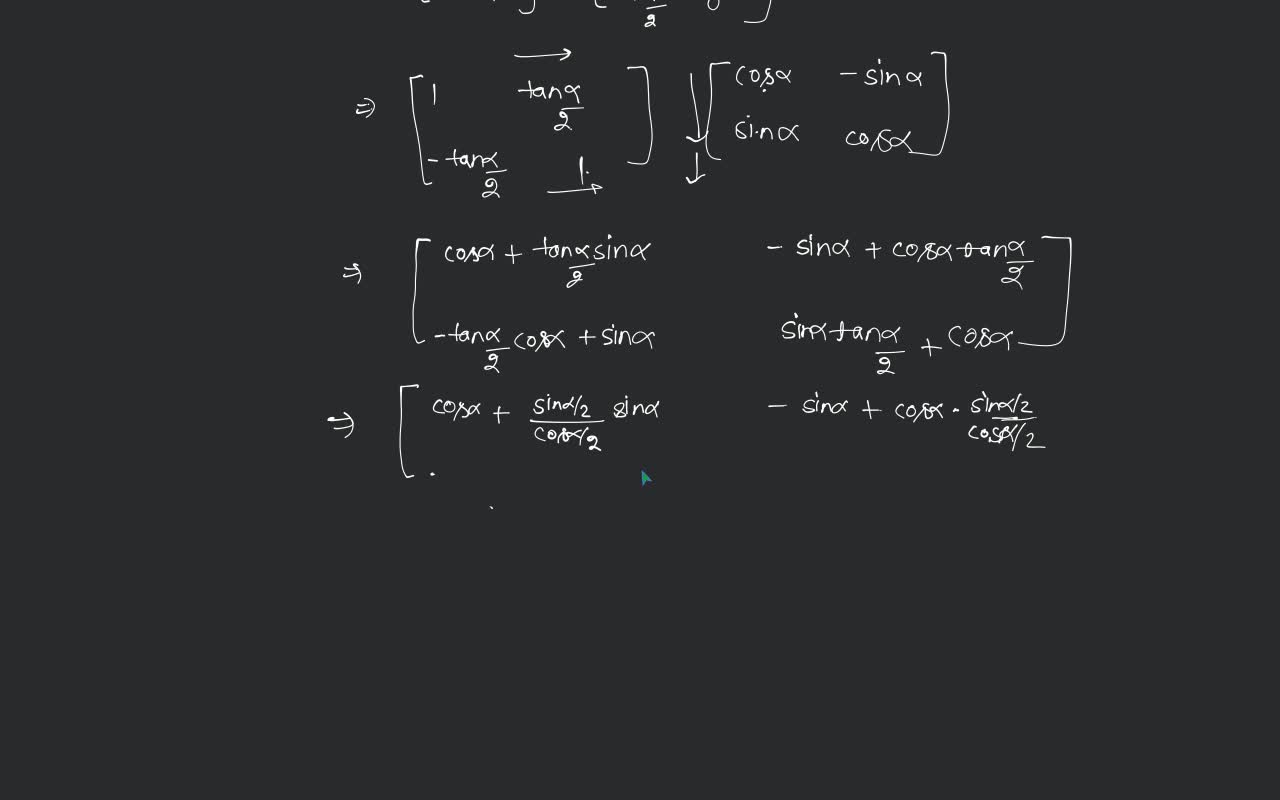 ⇒ [ 1 tan α/2 ] [ cosα - sinα ]
[ - tan α/2 1 ] [ sinα cosα ]
⇒ [ cosα + tan α/2 sinα - sinα + cosα tan α/2 ]
[ - tan α/2 cosα + sinα sinα tan α/2 + cosα ]
⇒ [ cosα + sinα/2 / cosα/2 sinα - sinα + cosα · sinα/2 / cosα/2